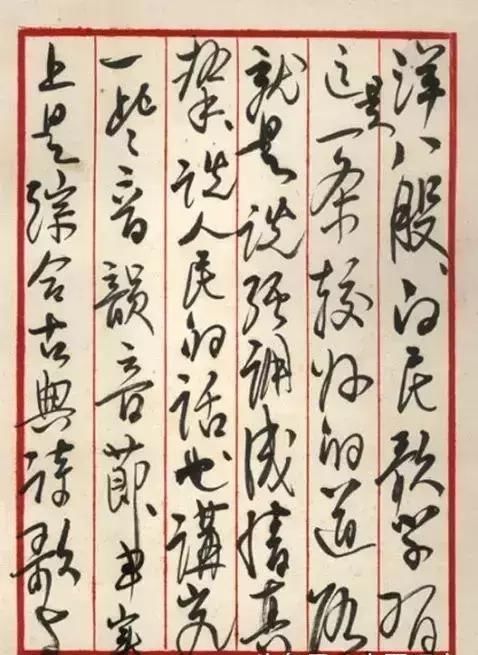 洋八股、向民歌学习
这是一条较好的道路
就是说强调感情真
挚、说人民的话也讲究
一些音韵音节、事实
上是综合古典诗歌与